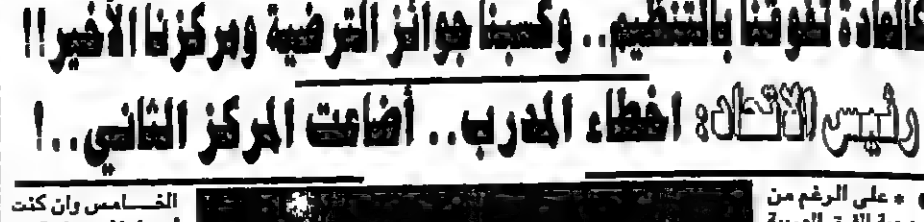 كالعادة تفوقنا بالتنظيم.. وكسبنا جوائز الترضية ومركزنا الأخير!!
رئيس الاتحاد: اخطاء المدرب.. أضاعت المركز الثاني..!
* على الرغم من
الخامس وان كنت